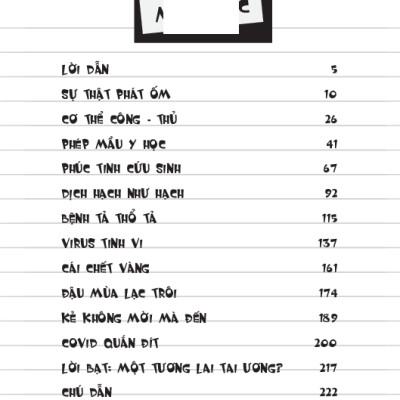 LỜI DẪN 5
SỰ THẬT PHÁT ỐM 10
CƠ THỂ CÔNG - THỦ 26
PHÉP MẦU Y HỌC 41
PHÚC TINH CỨU SINH 67
DỊCH HẠCH NHƯ HẠCH 92
BỆNH TẢ THỔ TẢ 115
VIRUS TINH VI 137
CÁI CHẾT VÀNG 161
ĐẬU MÙA LẠC TRÔI 174
KẺ KHÔNG MỜI MÀ ĐẾN 189
COVID QUẤN ĐÍT 200
LỜI BẠT: MỘT TƯƠNG LAI TAI ƯƠNG? 217
CHÚ DẪN 222